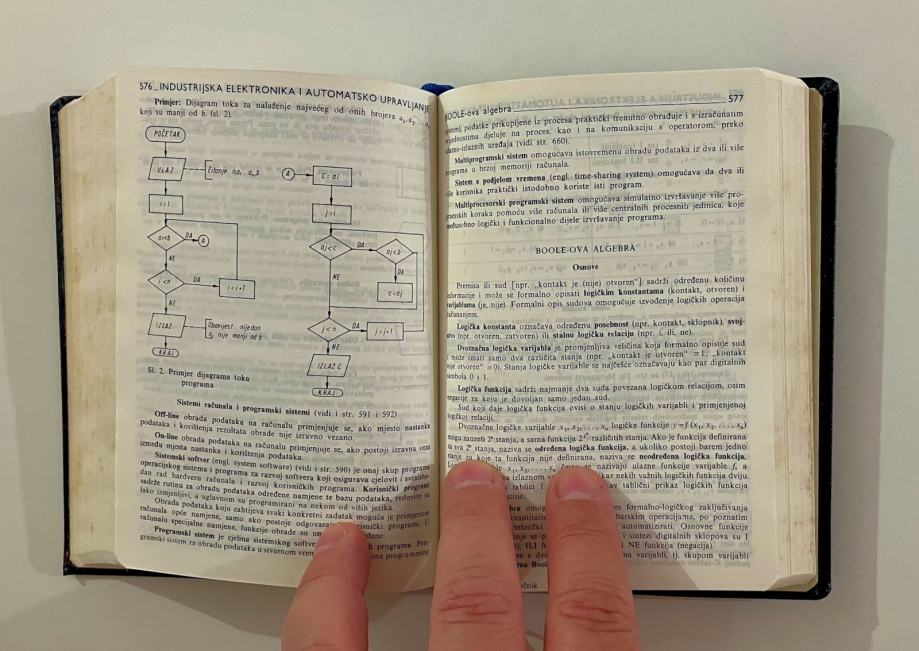 576 INDUSTRIJSKA ELEKTRONIKA I AUTOMATSKO UPRAVLJANJE
Primjer: Dijagram toka za nalaženje najvećeg od onih brojeva a₁, a₂,
koji su manji od b. (sl. 2).
POČETAK
ULAZ
Čitanje n, aᵢ, b
i=1
aᵢ<b
DA
A
NE
i<n
DA
i=i+1
NE
IZLAZ
Obavijest nijedan
aᵢ nije manji od b
KRAJ
A
C=aᵢ
j=i
aⱼ<C
DA
aⱼ<b
DA
NE
C=aⱼ
j<n
DA
j=j+1
NE
IZLAZ C
KRAJ
Sl. 2. Primjer dijagrama toka
programa
Sistemi računala i programski sistemi (vidi i str. 591 i 592)
Off-line obrada podataka na računalu primjenjuje se, ako mjesto nastanka
podataka i korištenja rezultata obrade nije izravno vezano.
On-line obrada podataka na računalu primjenjuje se, ako postoji izravna veza
između mjesta nastanka i korištenja podataka.
Sistemski softver (engl. system software) (vidi i str. 590) je onaj skup programa
operacijskog sistema i programa za razvoj softvera koji osigurava cjelovit i
dan rad hardveru računala i razvoj korisničkih programa. Korisnički programi
sadrže rutinu za obradu podataka određene namjene te bazu podataka, redovito su
lako izmjenljivi, a uglavnom su programirani na nekom od viših jezika.
Obrada podataka koju zahtijeva svaki konkretni zadatak moguća je primjenom
računala opće namjene, samo ako postoje korisnički programi. U
računalu specijalne namjene, funkcije obrade su
Programski sistem je cjelina sistemskog programa.
gramski sistem za obradu podataka u stvarnom time programming
BOOLE-ova algebra 577
podatke prikupljene iz procesa praktički trenutno obrađuje i s izračunatim
vrijednostima djeluje na proces, kao i na komunikaciju s operatorom, preko
ulazno-izlaznih uređaja (vidi str. 660).
Multiprogramski sistem omogućava istovremenu obradu podataka iz dva ili više
programa u brzoj memoriji računala.
Sistem s podjelom vremena (engl. time-sharing system) omogućava da dva ili
više korisnika praktički istodobno koriste isti program.
Multiprocesorski programski sistem omogućava simulatno izvršavanje više pro-
gramskih koraka pomoću više računala ili više centralnih procesnih jedinica, koje
međusobno logički i funkcionalno dijele izvršavanje programa.
BOOLE-OVA ALGEBRA
Osnove
Premisa ili sud [npr. „kontakt je (nije) otvoren"] sadrži određenu količinu
informacije i može se formalno opisati logičkim konstantama (kontakt, otvoren) i
varijablama (je, nije). Formalni opis sudova omogućuje izvođenje logičkih operacija
računanjem.
Logička konstanta označava određenu posebnost (npr. kontakt, sklopnik), svoj-
stvo (npr. otvoren, zatvoren) ili stalnu logičku relaciju (npr. i, ili, ne).
Dvoznačna logička varijabla je promjenljiva veličina koja formalno opisuje sud
i može imati samo dva različita stanja (npr. „kontakt je otvoren" = 1; „kontakt
nije otvoren" = 0). Stanja logičke varijable se najčešće označavaju kao par digitalnih
simbola 0 i 1.
Logička funkcija sadrži najmanje dva suda povezana logičkom relacijom, osim
negacije za koju je dovoljan samo jedan sud.
Sud koji daje logička funkcija ovisi o stanju logičkih varijabli i primjenjenoj
logičkoj relaciji.
Dvoznačne logičke varijable x₁, x₂, . . ., xₙ logičke funkcije y=f(x₁, x₂, . . ., xₙ)
mogu zauzeti 2ⁿ stanja, a sama funkcija različitih stanja. Ako je funkcija definirana
za sva 2ⁿ stanja, naziva se određena logička funkcija, a ukoliko postoji barem jedno
stanje za koje ta funkcija nije definirana, naziva se neodređena logička funkcija.
x₁, x₂, . . ., xₙ često se nazivaju ulazne funkcije varijable f, a
izlaznom kaz nekih važnih logičkih funkcija dviju
tablici 1 tablični prikaz logičkih funkcija
omo formalno-logičkog zaključivanja
barskim operacijama, po poznatim
tehnički automatizirati. Osnovne funkcije
koje se i sintezi digitalnih sklopova su I
ILI NE funkcija (negacija)
s dve ma varijabli, tj. skupom varijabli